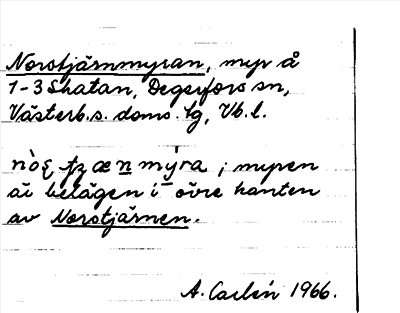 Norstjärnmyran, myr å
1-3 Skatan, Degerfors sn,
Västerb.s. doms. lg, Vb. l.
myra ; myren
är belägen i övre kanten
av Norstjärnen.
A. Carlén 1966.